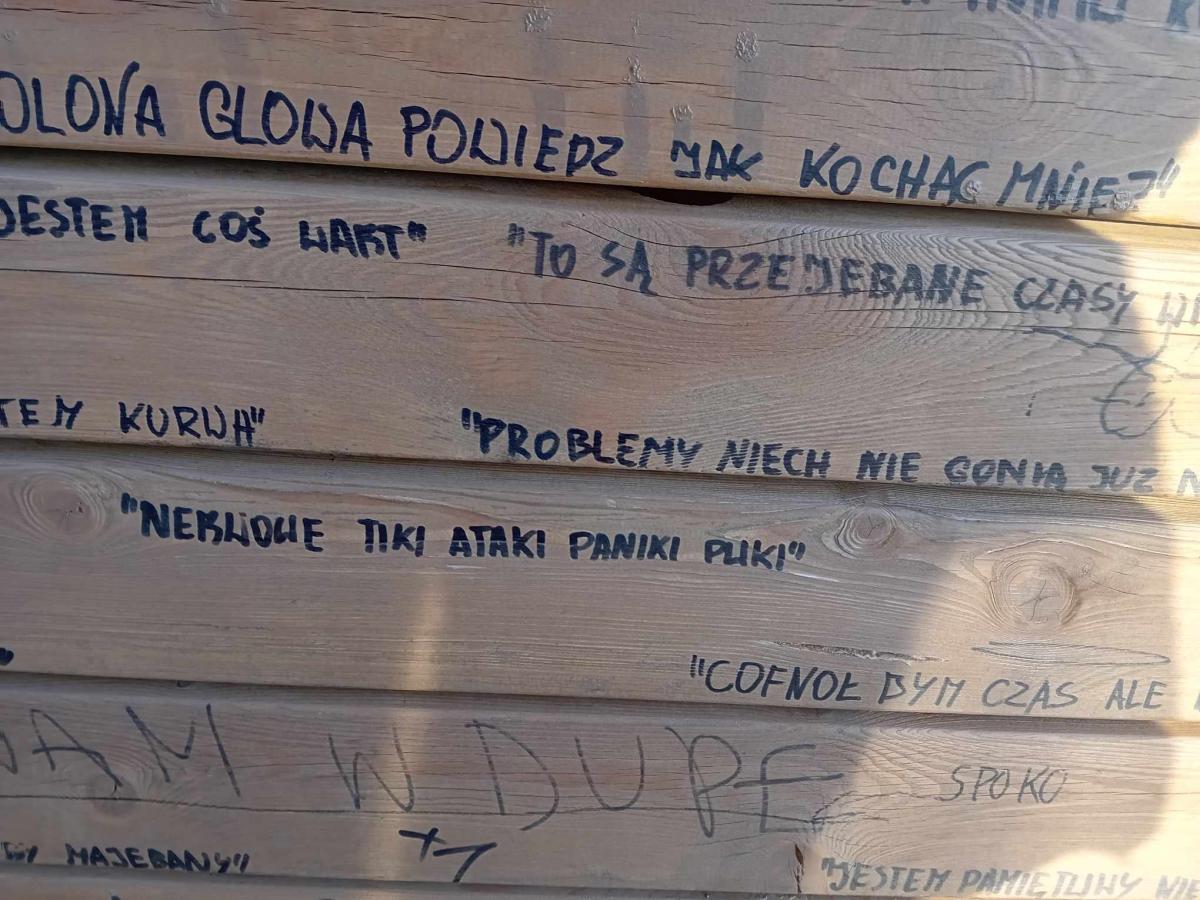 GLOWA POWIEDZ JAK KOCHAĆ MNIE?"
JESTEM COŚ WART" "TO SĄ PRZEJEBANE CZASY
KURWA" "PROBLEMY NIECH NIE GONIĄ JUZ
"NERWOWE TIKI ATAKI PANIKI PLIKI"
"COFNOŁ BYM CZAS ALE
W DUPE SPOKO
NAJEBANY"
+1
"JESTEM PAMIĘTLIWY NIE